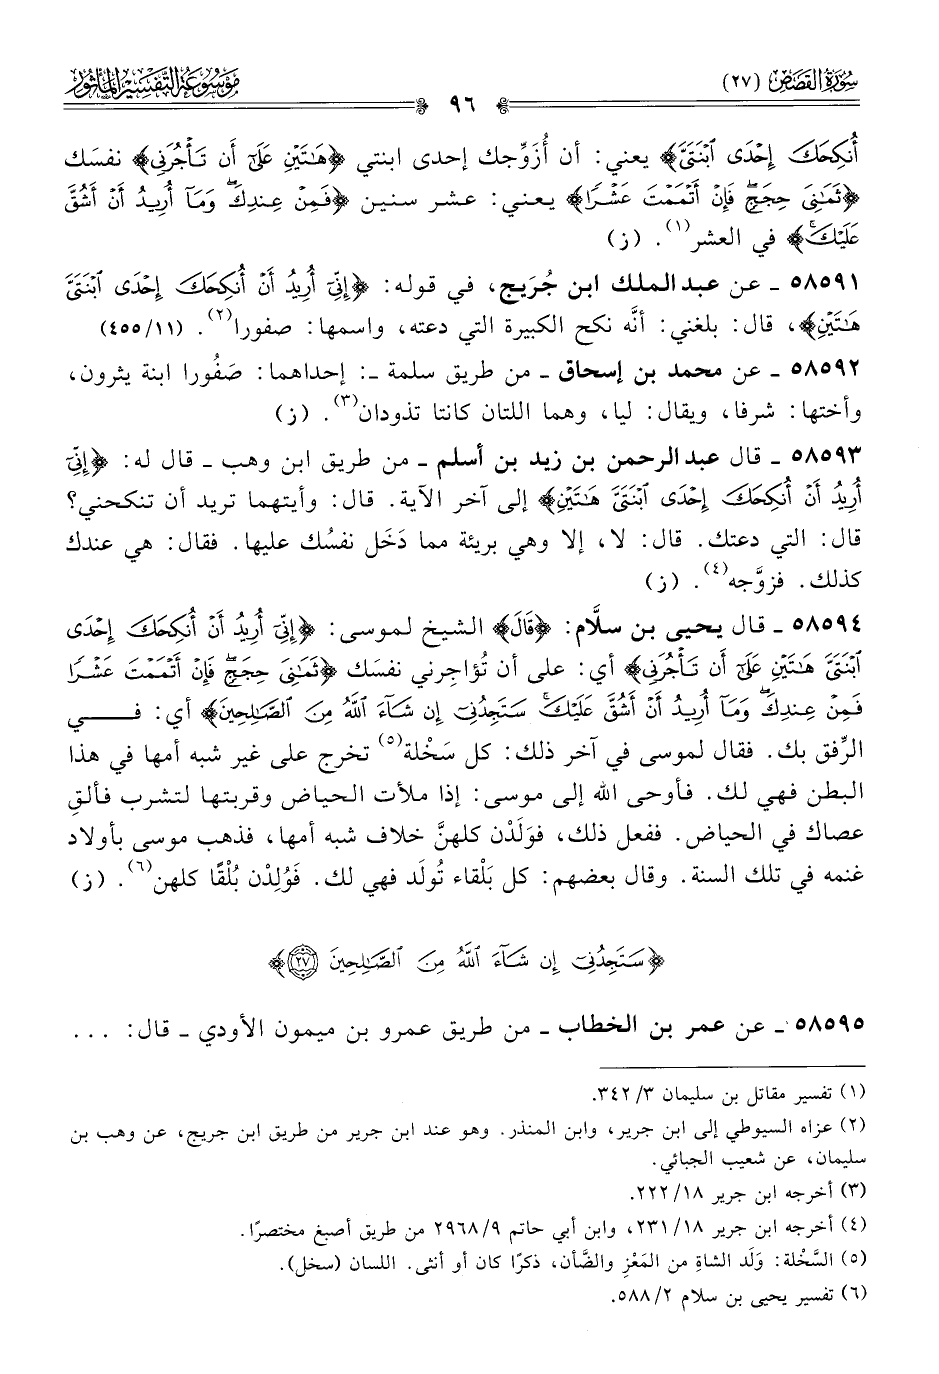 سُورَةُ القَصَصِ (٢٧)
مَوْسُوعَةُ التَّفْسِيرِ المَأْثُور
٩٦
أُنكِحَكَ إِحْدَى ٱبْنَتَىَّ﴾ يعني: أن أُزَوِّجك إحدى ابنتي ﴿هَـٰتَيْنِ عَلَىٰٓ أَن تَأْجُرَنِى﴾ نفسَك
﴿ثَمَـٰنِىَ حِجَجٍۖ فَإِنْ أَتْمَمْتَ عَشْرًا﴾ يعني: عشر سنين ﴿فَمِنْ عِندِكَۖ وَمَآ أُرِيدُ أَنْ أَشُقَّ
عَلَيْكَۚ﴾ في العشر(١). (ز)
٥٨٥٩١ ـ عن عبد الملك ابن جُرَيج، في قوله: ﴿إِنِّىٓ أُرِيدُ أَنْ أُنكِحَكَ إِحْدَى ٱبْنَتَىَّ
هَـٰتَيْنِ﴾، قال: بلغني: أنَّه نكح الكبيرة التي دعته، واسمها: صفورا(٢). (١١/ ٤٥٥)
٥٨٥٩٢ ـ عن محمد بن إسحاق ـ من طريق سلمة ـ: إحداهما: صَفُورا ابنة يثرون،
وأختها: شرفا، ويقال: ليا، وهما اللتان كانتا تذودان(٣). (ز)
٥٨٥٩٣ ـ قال عبد الرحمن بن زيد بن أسلم ـ من طريق ابن وهب ـ قال له: ﴿إِنِّىٓ
أُرِيدُ أَنْ أُنكِحَكَ إِحْدَى ٱبْنَتَىَّ هَـٰتَيْنِ﴾ إلى آخر الآية. قال: وأيتهما تريد أن تنكحني؟
قال: التي دعتك. قال: لا، إلا وهي بريئة مما دَخَل نفسُك عليها. فقال: هي عندك
كذلك. فزوَّجه(٤). (ز)
٥٨٥٩٤ ـ قال يحيى بن سلَّام: ﴿قَالَ﴾ الشيخ لموسى: ﴿إِنِّىٓ أُرِيدُ أَنْ أُنكِحَكَ إِحْدَى
ٱبْنَتَىَّ هَـٰتَيْنِ عَلَىٰٓ أَن تَأْجُرَنِى﴾ أي: على أن تُؤاجِرني نفسك ﴿ثَمَـٰنِىَ حِجَجٍۖ فَإِنْ أَتْمَمْتَ عَشْرًا
فَمِنْ عِندِكَۖ وَمَآ أُرِيدُ أَنْ أَشُقَّ عَلَيْكَۚ سَتَجِدُنِىٓ إِن شَآءَ ٱللَّهُ مِنَ ٱلصَّـٰلِحِينَ﴾ أي: فـــــي
الرِّفق بك. فقال لموسى في آخر ذلك: كل سَخْلة(٥) تخرج على غير شبه أمها في هذا
البطن فهي لك. فأوحى الله إلى موسى: إذا ملأت الحياض وقربتها لتشرب فألقِ
عصاك في الحياض. ففعل ذلك، فوَلَدْن كلهنَّ خلاف شبه أمها، فذهب موسى بأولاد
غنمه في تلك السنة. وقال بعضهم: كل بَلْقاء تُولَد فهي لك. فَوُلِدْن بُلْقًا كلهن(٦). (ز)
﴿سَتَجِدُنِىٓ إِن شَآءَ ٱللَّهُ مِنَ ٱلصَّـٰلِحِينَ ٢٧﴾
٥٨٥٩٥ ـ عن عمر بن الخطاب ـ من طريق عمرو بن ميمون الأودي ـ قال: ...
(١) تفسير مقاتل بن سليمان ٣/ ٣٤٢.
(٢) عزاه السيوطي إلى ابن جرير، وابن المنذر. وهو عند ابن جرير من طريق ابن جريج، عن وهب بن
سليمان، عن شعيب الجبائي.
(٣) أخرجه ابن جرير ١٨/ ٢٢٢.
(٤) أخرجه ابن جرير ١٨/ ٢٣١، وابن أبي حاتم ٩/ ٢٩٦٨ من طريق أصبغ مختصرًا.
(٥) السَّخْلة: وَلَد الشاةِ من المَعْزِ والضَّأن، ذكرًا كان أو أنثى. اللسان (سخل).
(٦) تفسير يحيى بن سلام ٢/ ٥٨٨.